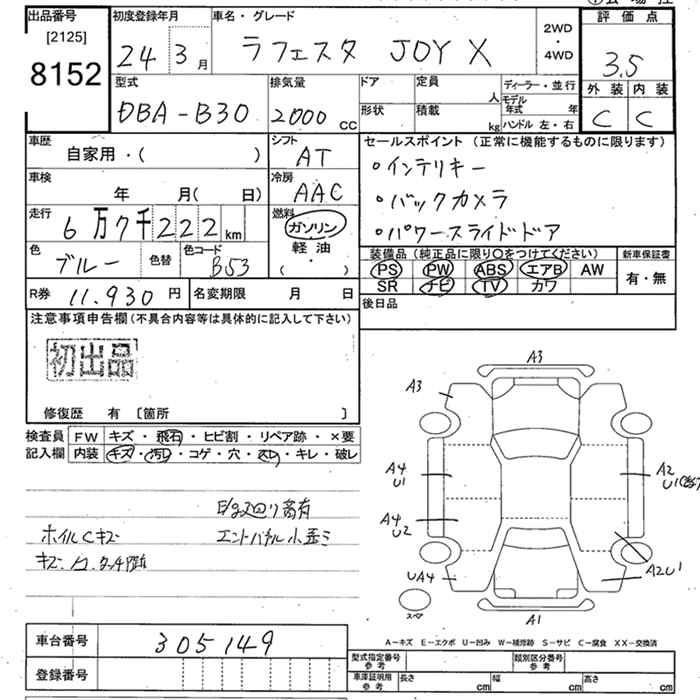 出品番号
[2125]
8152
初度登録年月
24 3月
車名・グレード
ラフェスタ JOY X
2WD
・
4WD
評価点
3.5
外装 内装
C C
型式
DBA-B30
排気量
2000 cc
ドア
形状
定員 人
積載 kg
ディーラー・並行
モデル年式 年
ハンドル 左・右
車歴
自家用・( )
シフト
AT
車検
年 月( 日)
冷房
AAC
走行
6万7千222km
燃料
ガソリン
軽油
( ・ )
色
ブルー
色替
色コード
B53
R券 11.930円
名変期限 月 日
セールスポイント (正常に機能するものに限ります)
・インテリキー
・バックカメラ
・パワースライドドア
装備品(純正品に限り○をつけてください)
PS PW ABS エアB AW
SR ナビ TV カワ
新車保証書
有・無
後日品
注意事項申告欄(不具合内容等は具体的に記入して下さい)
初出品
修復歴 有 [箇所 ]
検査員記入欄
FW キズ・飛石・ヒビ割・リペア跡・×要
内装 キズ・汚レ・コゲ・穴・スレ・キレ・破レ
ホイルCキズ
A3
A3
A4
U1
A4
U2
UA4
A1
A2
A2U1
スペア
A-キズ E-エクボ U-凹み W-補修跡 S-サビ C-腐食 XX-交換済
車台番号
305149
登録番号
型式指定番号参考
類別区分番号参考
車庫証明用参考
長さ cm
幅 cm
高さ cm